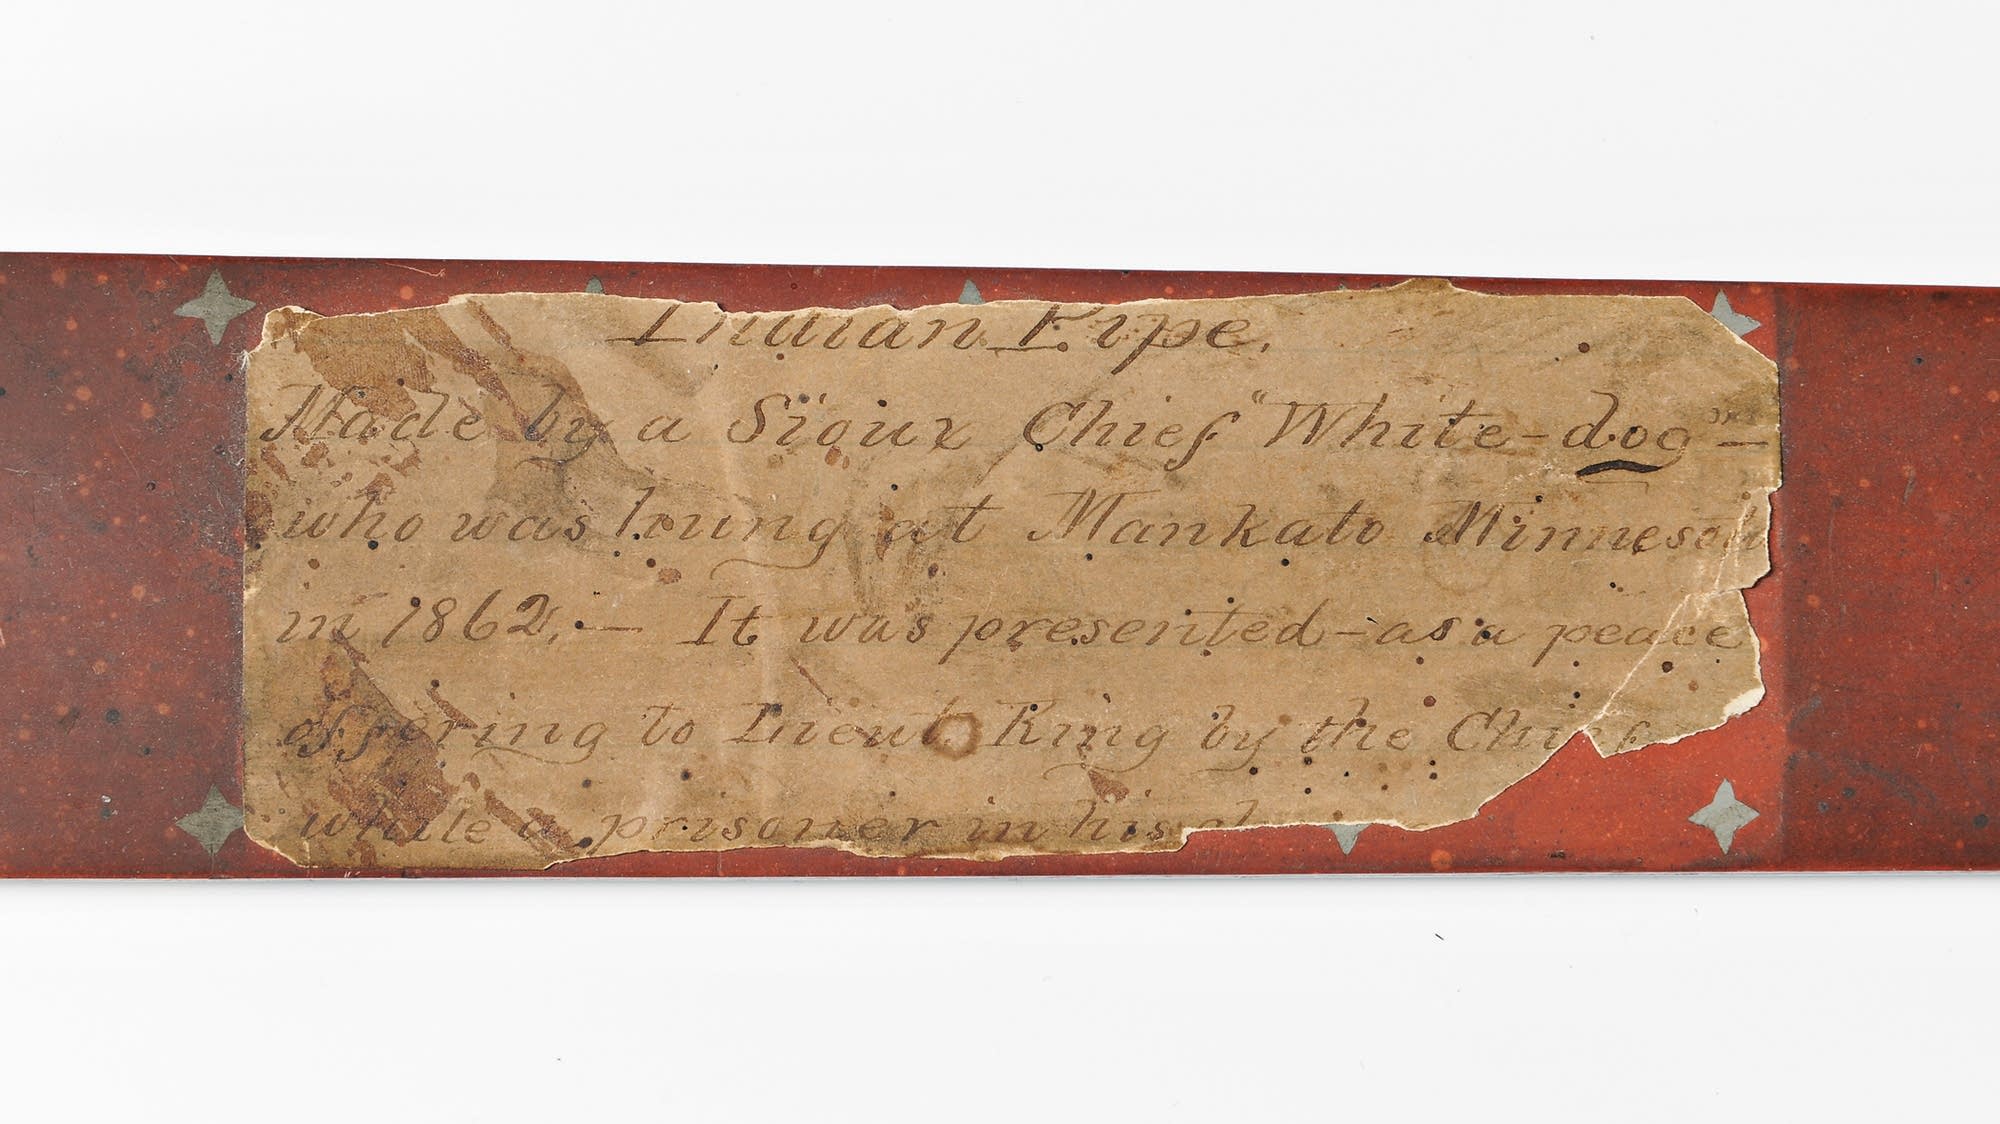 Indian Pipe.
Made by a Sioux Chief "White-dog" —
who was hung at Mankato Minnesota
in 1862. — It was presented - as a peace
offering to Lieut King by the Chief
while a prisoner in his